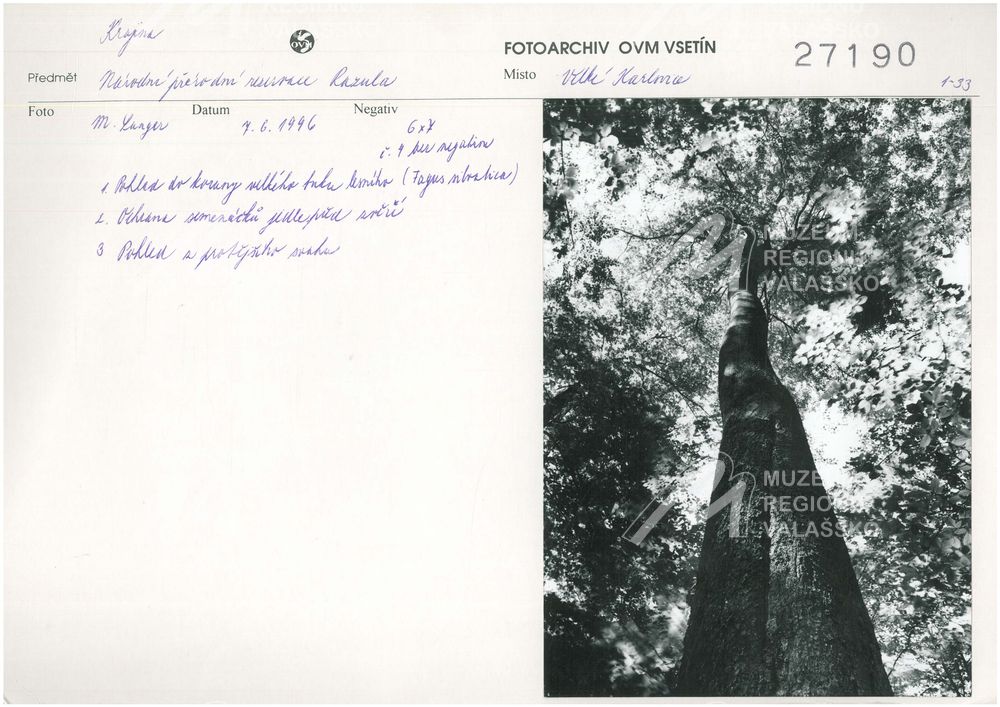 Krajina
OVM
FOTOARCHIV OVM VSETÍN
27190
Předmět Národní přírodní rezervace Razula
Místo Velké Karlovice
1-33
Foto Datum Negativ
M. Langer 7. 6. 1996 6x7
č. 4 bez negativu
1. Pohled do koruny velkého buku lesního (Fagus silvatica)
2. Ochrana semenáčků jedle před zvěří
3 Pohled z protějšího svahu
MUZEUM
REGIONU
VALAŠSKO
MUZEUM
REGIONU
VALAŠSKO